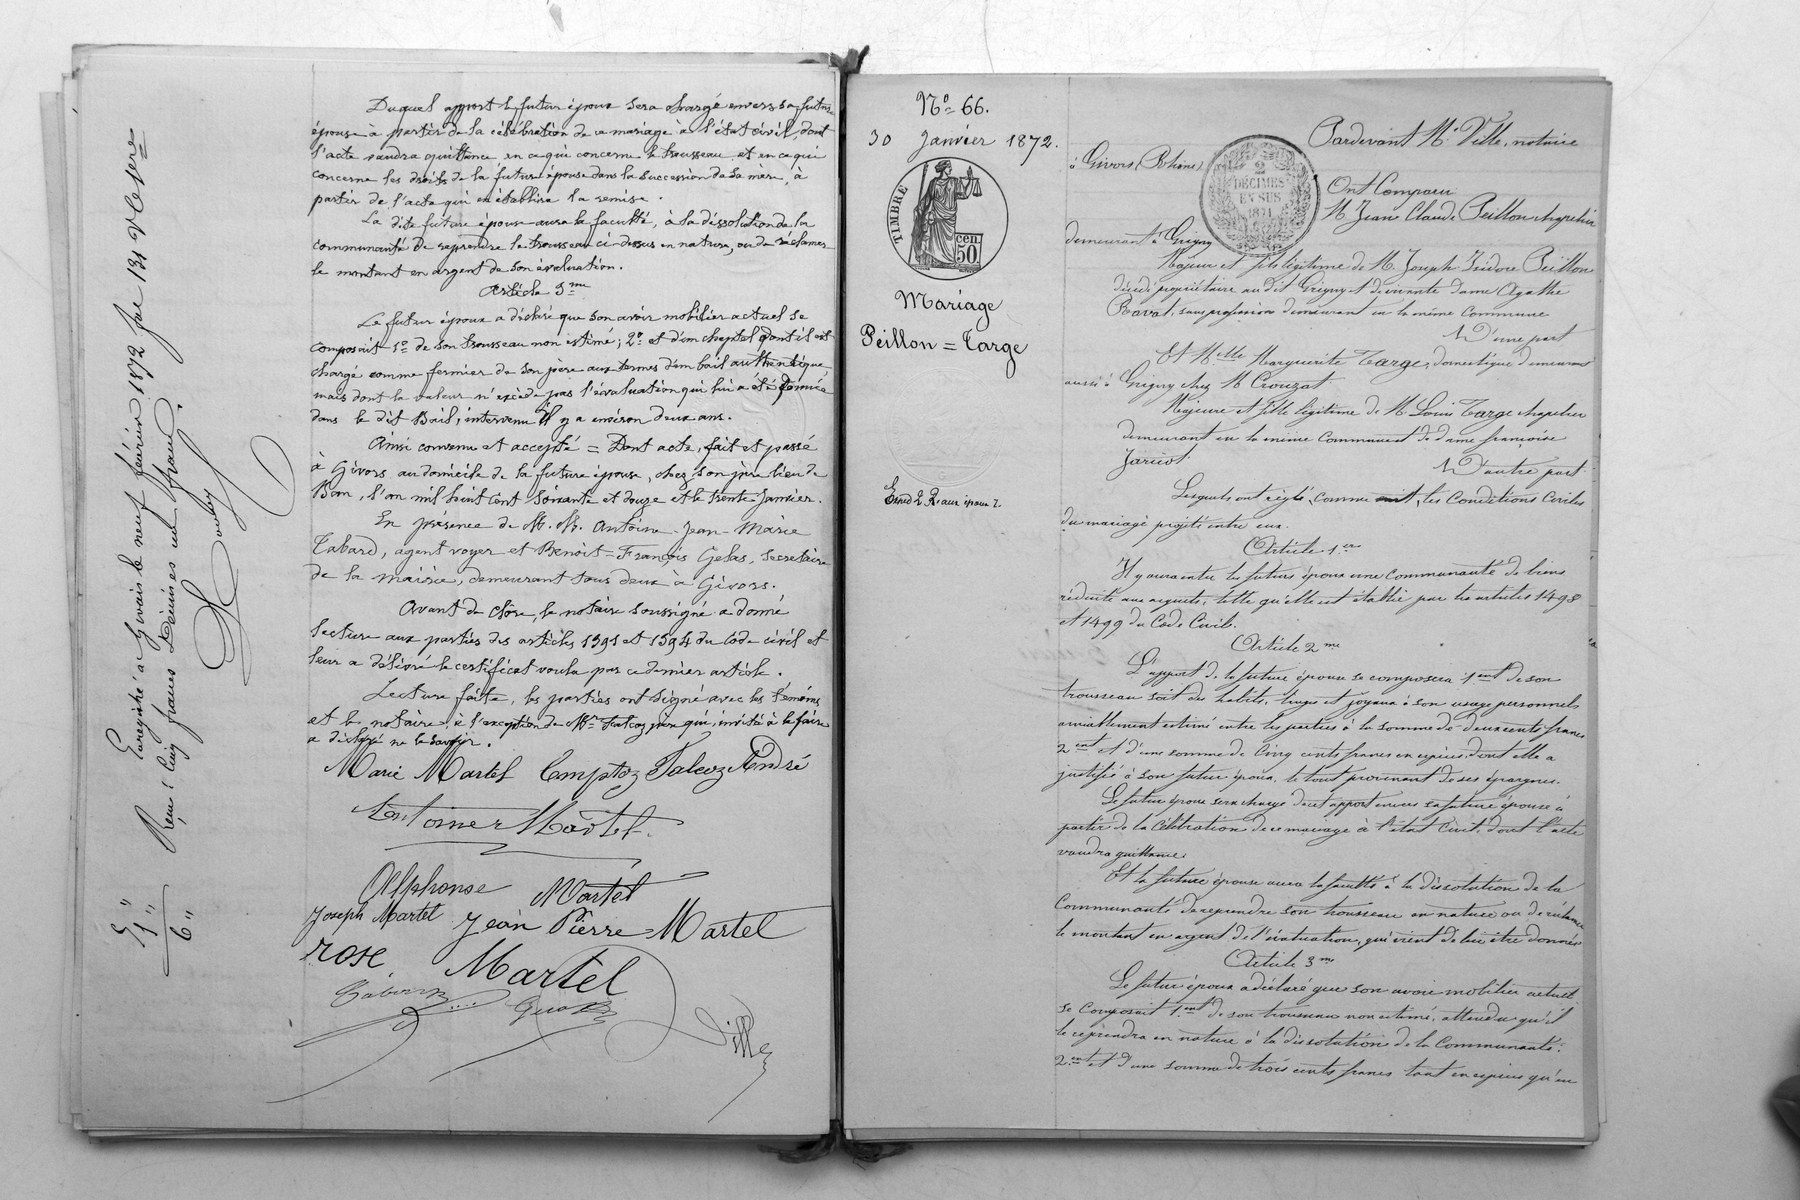 Duquel apport le futur époux sera chargé envers sa future
épouse à partir de la célébration de ce mariage à l'état civil, dont
l'acte vaudra quittance, en ce qui concerne le trousseau et en ce qui
concerne les droits de la future épouse dans la succession de sa mère, à
partir de l'acte qui en établira la remise.
La dite future épouse aura la faculté, à la dissolution de la
communauté de reprendre le trousseau ci-dessus en nature, ou de réclamer
le montant en argent de son évaluation.
Article 3me
Le futur époux a déclaré que son avoir mobilier actuel se
composait 1o de son trousseau non estimé; 2o et d'un cheptel dont il est
chargé comme fermier de son père aux termes d'un bail authentique,
mais dont la valeur n'excède pas l'évaluation qui lui a été donnée
dans le dit Bail, intervenu il y a environ deux ans.
Ainsi convenu et accepté = Dont acte, fait et passé
à Givors au domicile de la future épouse, chez son père lieu de
Ban, l'an mil huit cent soixante et douze et le trente Janvier.
En présence de M. M. Antoine-Jean-Marie
Tabard, agent voyer et Benoit=François Gelas, secrétaire
de la mairie, demeurant tous deux à Givors.
Avant de clôre, le notaire soussigné a donné
lecture aux parties des articles 1391 et 1394 du Code civil et
leur a délivré le certificat voulu par ce dernier article.
Lecture faite, les parties ont signé avec les témoins
et le notaire, à l'exception de Mr Falcoz père qui, invité à le faire
a déclaré ne le savoir.
Marie Martel Comptoz Falcoz André
Antoine Martel.
Alphonse Martel
Joseph Martel Jean Pierre Martel
rose Martel
Ville
Enregistré à Givors le neuf février 1872 folio 131 Vo
Reçu cinq francs Décimes un franc.
5 "
1 "
6 "
No 66.
30 Janvier 1872.
TIMBRE
50 cen.
Mariage
Peillon = Targe
Pardevant Me Ville, notaire
à Givors (Rhône)
2
DÉCIMES
EN SUS
1871
Ont Comparu
M. Jean Claude Peillon
demeurant à Grigny
Majeur et fils légitime de M. Joseph Isidore Peillon
décédé propriétaire au dit Grigny et de vivante dame Agathe
Ravat, sans profession demeurant en la même Commune
D'une part
Et Melle Marguerite Targe, domestique demeurant
aussi à Grigny chez M. Crouzat
Majeure et fille légitime de M. Louis Targe
demeurant en la même Commune et de dame françoise
Jaricot
D'autre part
Lesquels ont réglé, comme suit, les Conditions Civiles
du mariage projeté entre eux.
Article 1er
Il y aura entre les futurs époux une communauté de biens
réduite aux acquets, telle qu'elle est établie par les articles 1498
et 1499 du Code Civil.
Article 2me
L'apport de la future épouse se composera 1ent de son
trousseau soit des habits, linges et joyaux à son usage personnels
amiablement estimé entre les parties à la somme de deux cents francs
2ent et d'une somme de Cinq cents francs en espèces dont elle a
justifié à son futur époux, le tout provenant de ses épargnes.
Le futur époux sera chargé du dit apport envers sa future épouse à
partir de la Célébration de ce mariage à l'état civil, dont l'acte
vaudra quittance.
Et la future épouse aura la faculté à la dissolution de la
Communauté de reprendre son trousseau en nature ou de réclamer
le montant en argent de l'évaluation, qui vient de lui être donnée
Article 3me
Le futur époux a déclaré que son avoir mobilier actuel
se Composait 1ent de son trousseau non estimé, attendu qu'il
le reprendra en nature à la dissolution de la Communauté.
2ent et d'une somme de trois cents francs tant en espèces qu'en